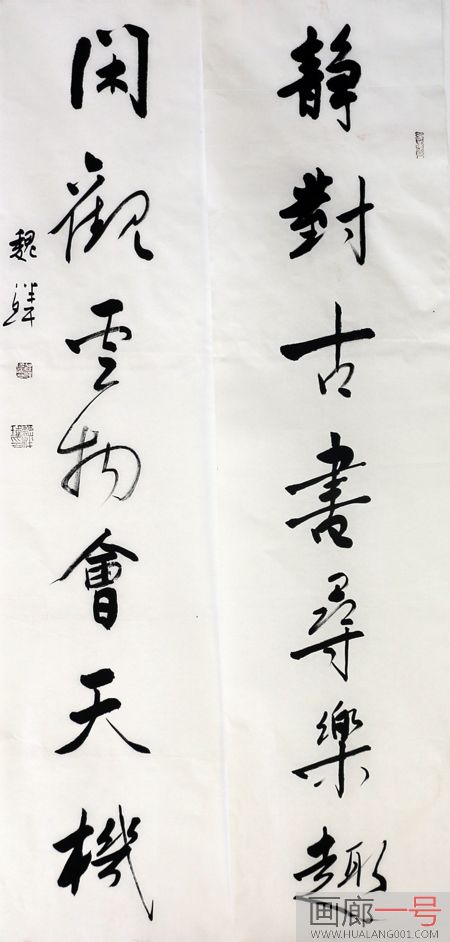 静對古書尋樂趣
闲觀雲物會天機
魏
画廊一号
WWW.HUALANG001.COM